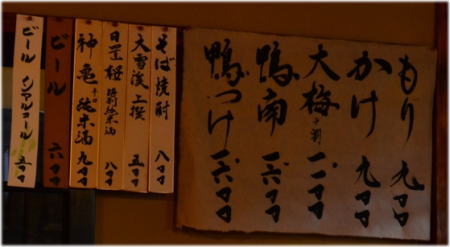 もり 九〇〇
かけ 九〇〇
大梅 十割 一一〇〇
鴨南 一六〇〇
鴨つけ 一六〇〇
そば焼酎 八〇〇
大雪渓 上撰 五〇〇
日置桜 特別純米酒 八〇〇
神亀 辛口 純米酒 九〇〇
ビール 六〇〇
ビール ノンアルコール 五〇〇